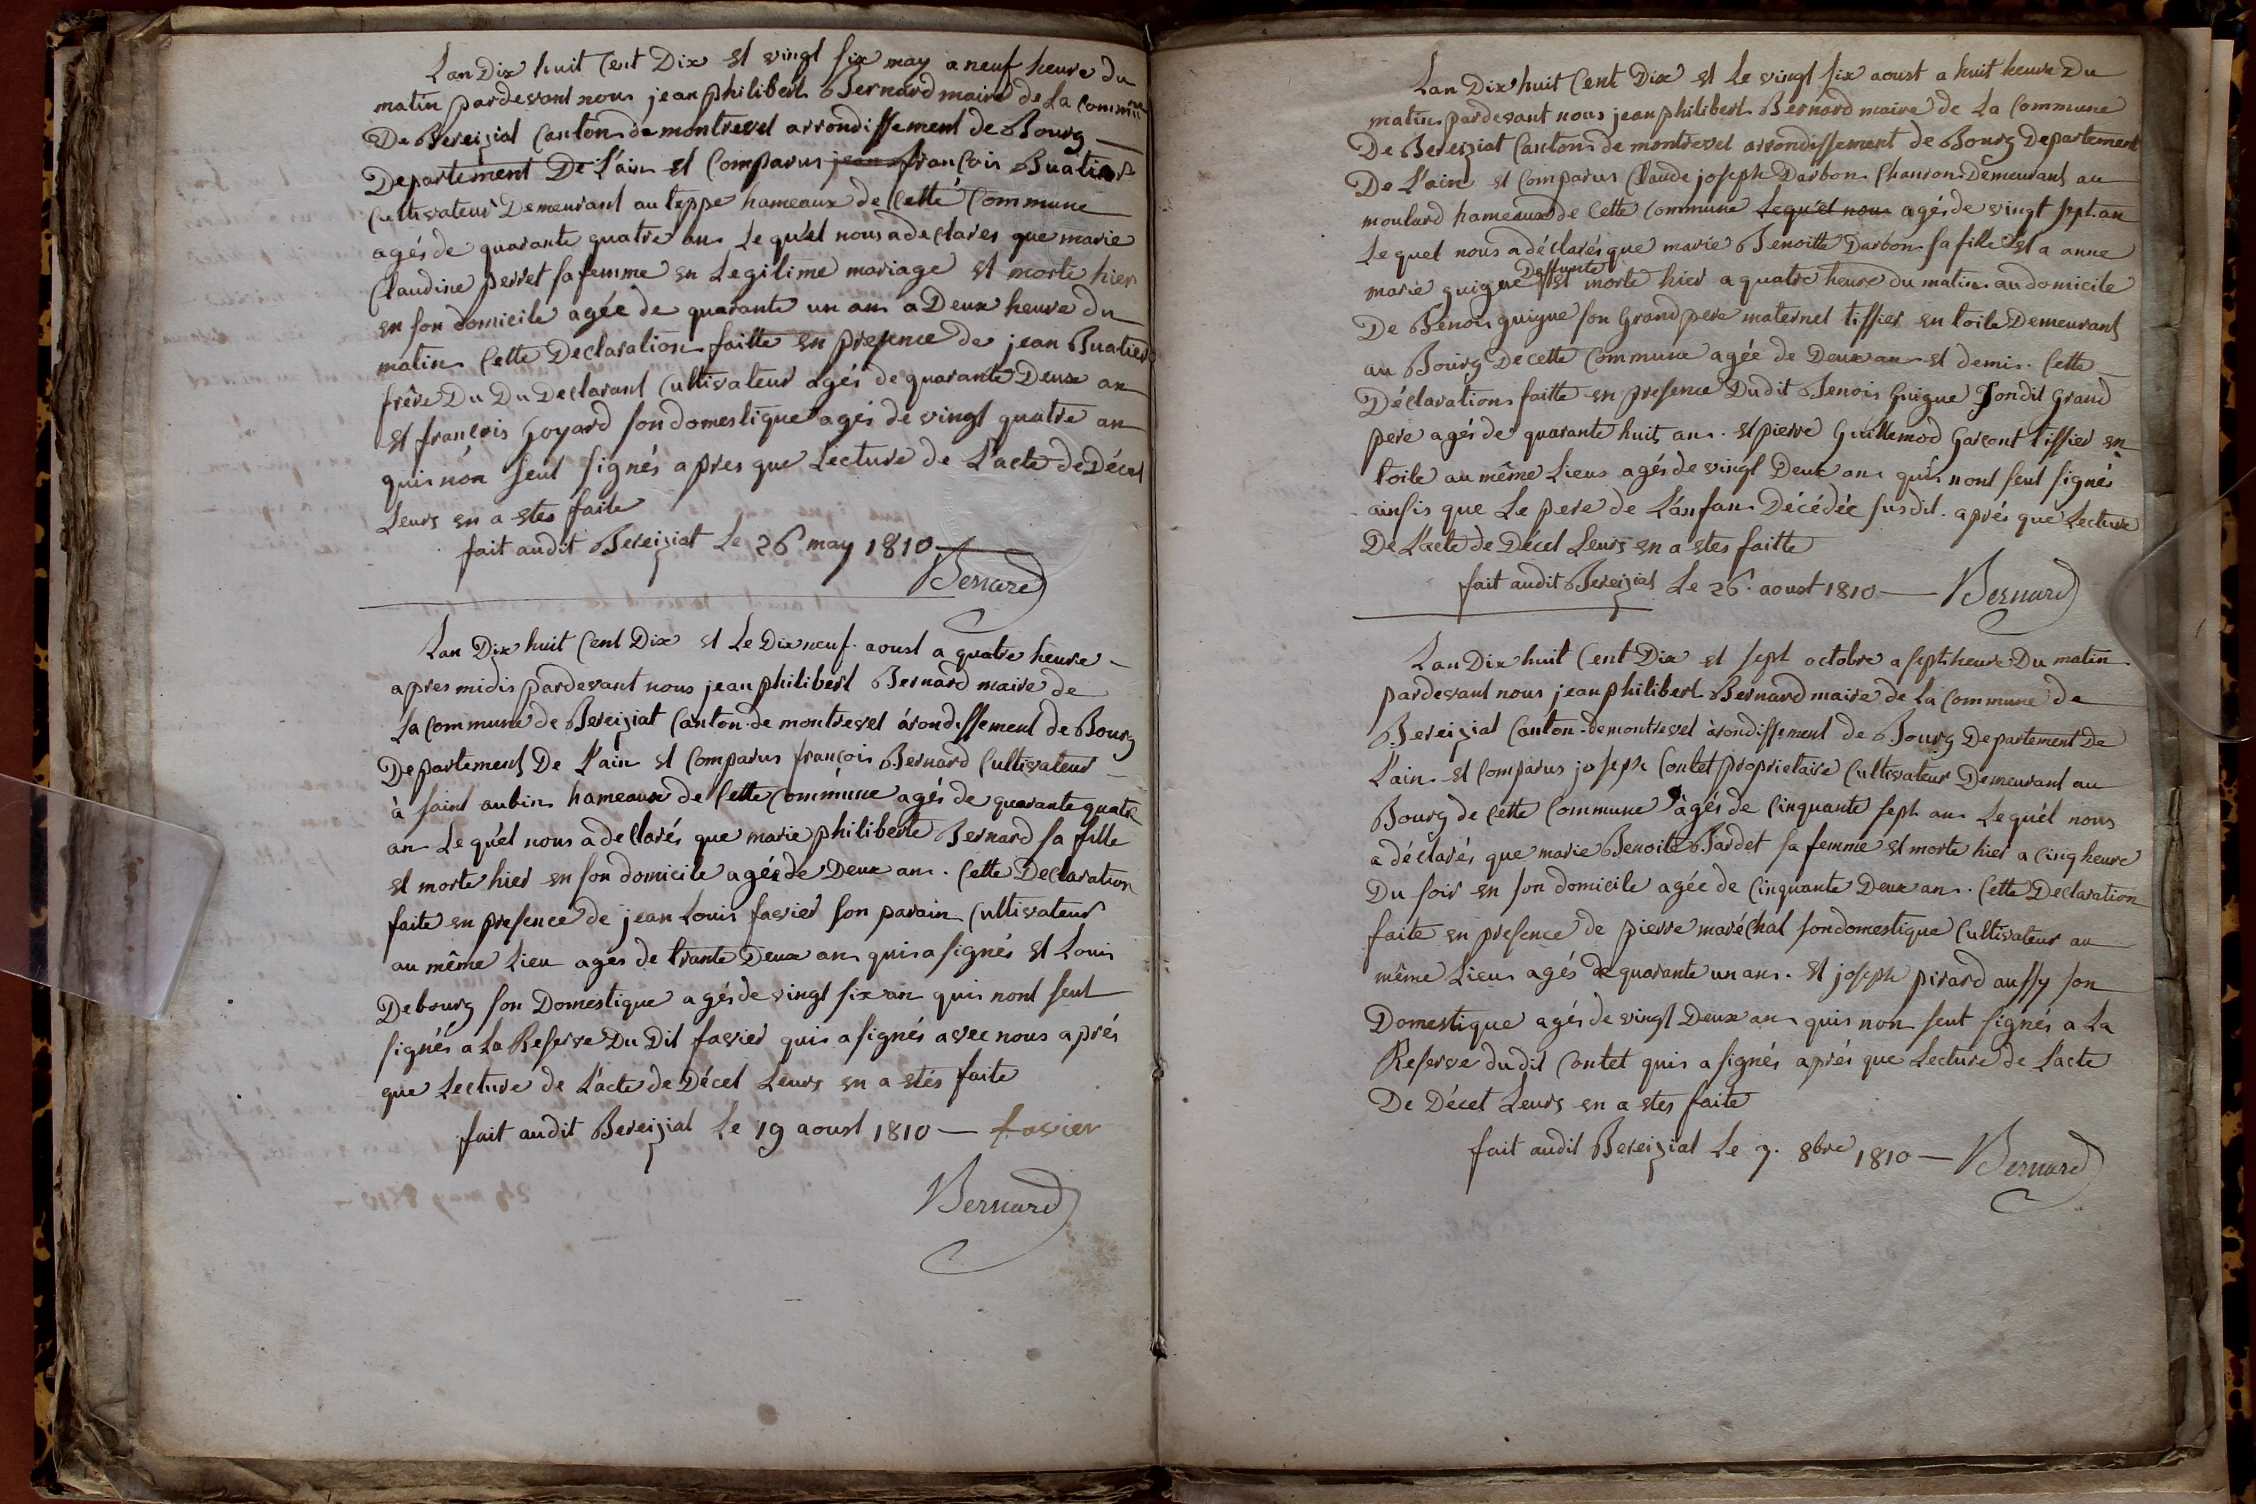 Lan Dix huit Cent Dix et vingt six may a neuf heure du
matin pardevant nous jean philibert Bernard maire de La Commune
De Bereiziat Canton de montrevel arrondissement de Bourg
Departement De L'ain et Comparus jean françois Buatier
Cultivateur Demeurant au teppe hameaux de Cette Commune
agés de quarante quatre an Le quél nous a declarés que marie
Claudine perret sa femme en Legitime mariage et morte hier
en son domicile agée de quarante un an a Deux heure du
matin Cette Declaration faitte en presence de jean Buatier
frére Du Du Declarant Cultivateur agés de quarante Deux an
et françois Goyard son domestique agés de vingt quatre an
quis non seut signés apres que Lecture de L'acte de Décet
Leurs en a etes faite
fait audit Bereiziat Le 26 may 1810
Bernard
Lan Dix huit Cent Dix et Le Dix neuf aoust a quatre heure
apres midis pardevant nous jean philibert Bernard maire de
La Commune de Bereiziat Canton de montrevel árondissement de Bourg
Departement De L'ain et Comparus françois Bernard Cultivateur
à saint aubin hameaux de Cette Commune agés de quarante quatre
an Le quél nous a declarés que marie philiberte Bernard sa fille
et morte hier en son domicile agée de Deux an. Cette Declaration
faite en presence de jean Louis favier son parain Cultivateur
au même Lieu agés de trante Deux an quis a signés et Louis
Debourg son Domestique agés de vingt six an quis nont seut
signés a La Reserve Du Dit favier quis a signés avec nous aprés
que Lecture de L'acte de Décet Leurs en a etés faite
fait audit Bereiziat Le 19 aoust 1810 — favier
Bernard
Lan Dix huit Cent Dix et Le vingt six aoust a huit heure Du
matin pardevant nous jean philibert Bernard maire de La Commune
De Bereiziat Canton de montrevel arrondissement de Bourg Departement
De L'ain et Comparus Claude joseph Darbon Charon Demeurant au
moulard hameaux de Cette Commune Lequél nous agés de vingt sept an
Le quel nous a déclarés que marie Benoitte Darbon sa fille et a anne
marie guigue Deffunte et morte hier a quatre heure du matin au domicile
De Benois guigue son Grand pere maternel tissier en toile Demeurant
au Bourg De cette Commune agée de Deux an et demis. Cette
Déclaration faitte en presence Dudit Benois Guigue Sondit Grand
pere agés de quarante huit an. et pierre Guillemod Garçont tissier en
toile au même Lieux agés de vingt Deux an quis nont seut signés
ainsis que Le pere de L'anfan Décédée susdit. aprés que Lecture
De L'acte de Décet Leurs en a etes faitte
fait audit Bereiziat Le 26 aoust 1810 — Bernard
Lan Dix huit Cent Dix et sept octobre a sept heure Du matin
pardevant nous jean philibert Bernard maire de La Commune de
Bereiziat Canton de montrevel àrondissement de Bourg Departement De
L'ain et Comparus joseph Contet proprietaire Cultivateur Demeurant au
Bourg de Cette Commune àgés de Cinquante sept an Le quél nous
a déclarés que marie Benoite Bardet sa femme et morte hier a Cinq heure
Du soir en son domicile agée de Cinquante Deux an. Cette Declaration
faite en presence de pierre maréchal son domestique Cultivateur au
même Lieux agés de quarante un an. et joseph pirard aussy son
Domestique agés de vingt Deux an quis non seut signés a La
Reserve dudit Contet quis a signés aprés que Lecture de L'acte
De Décet Leurs en a etes faite
fait audit Bereiziat Le 7. 8bre 1810 — Bernard